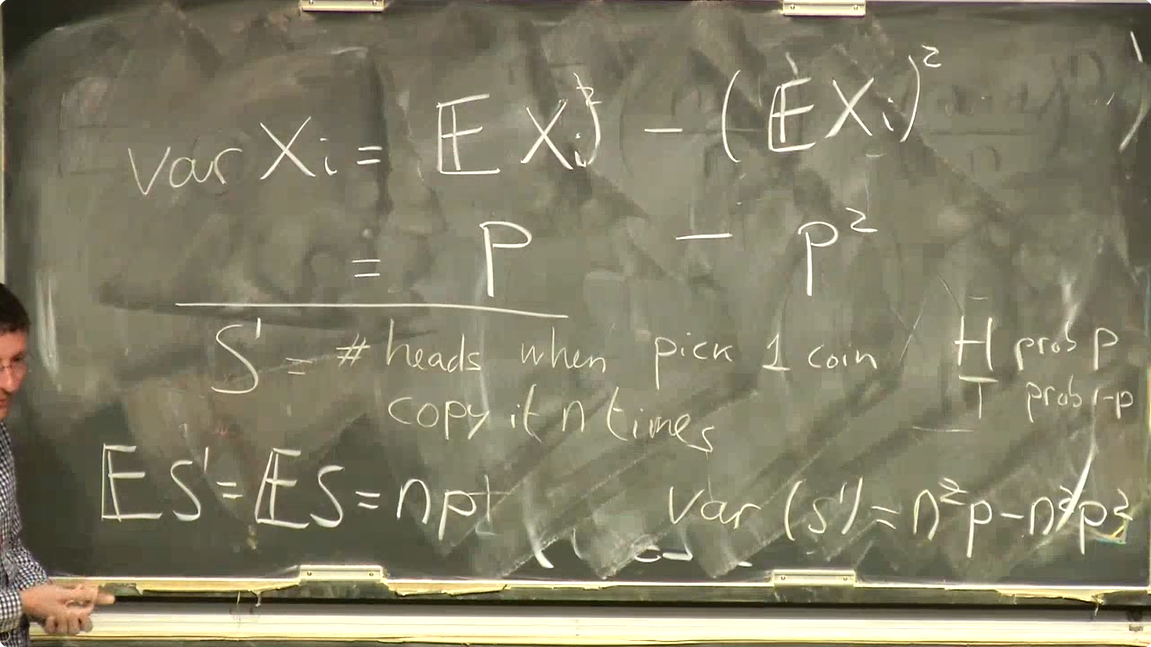 var Xi = 𝔼 Xi² − (𝔼 Xi)²
= p − p²
S' = # heads when pick 1 coin
copy it n times
H prob p
T prob 1-p
𝔼S' = 𝔼S = np
var (S') = n²p − n²p²